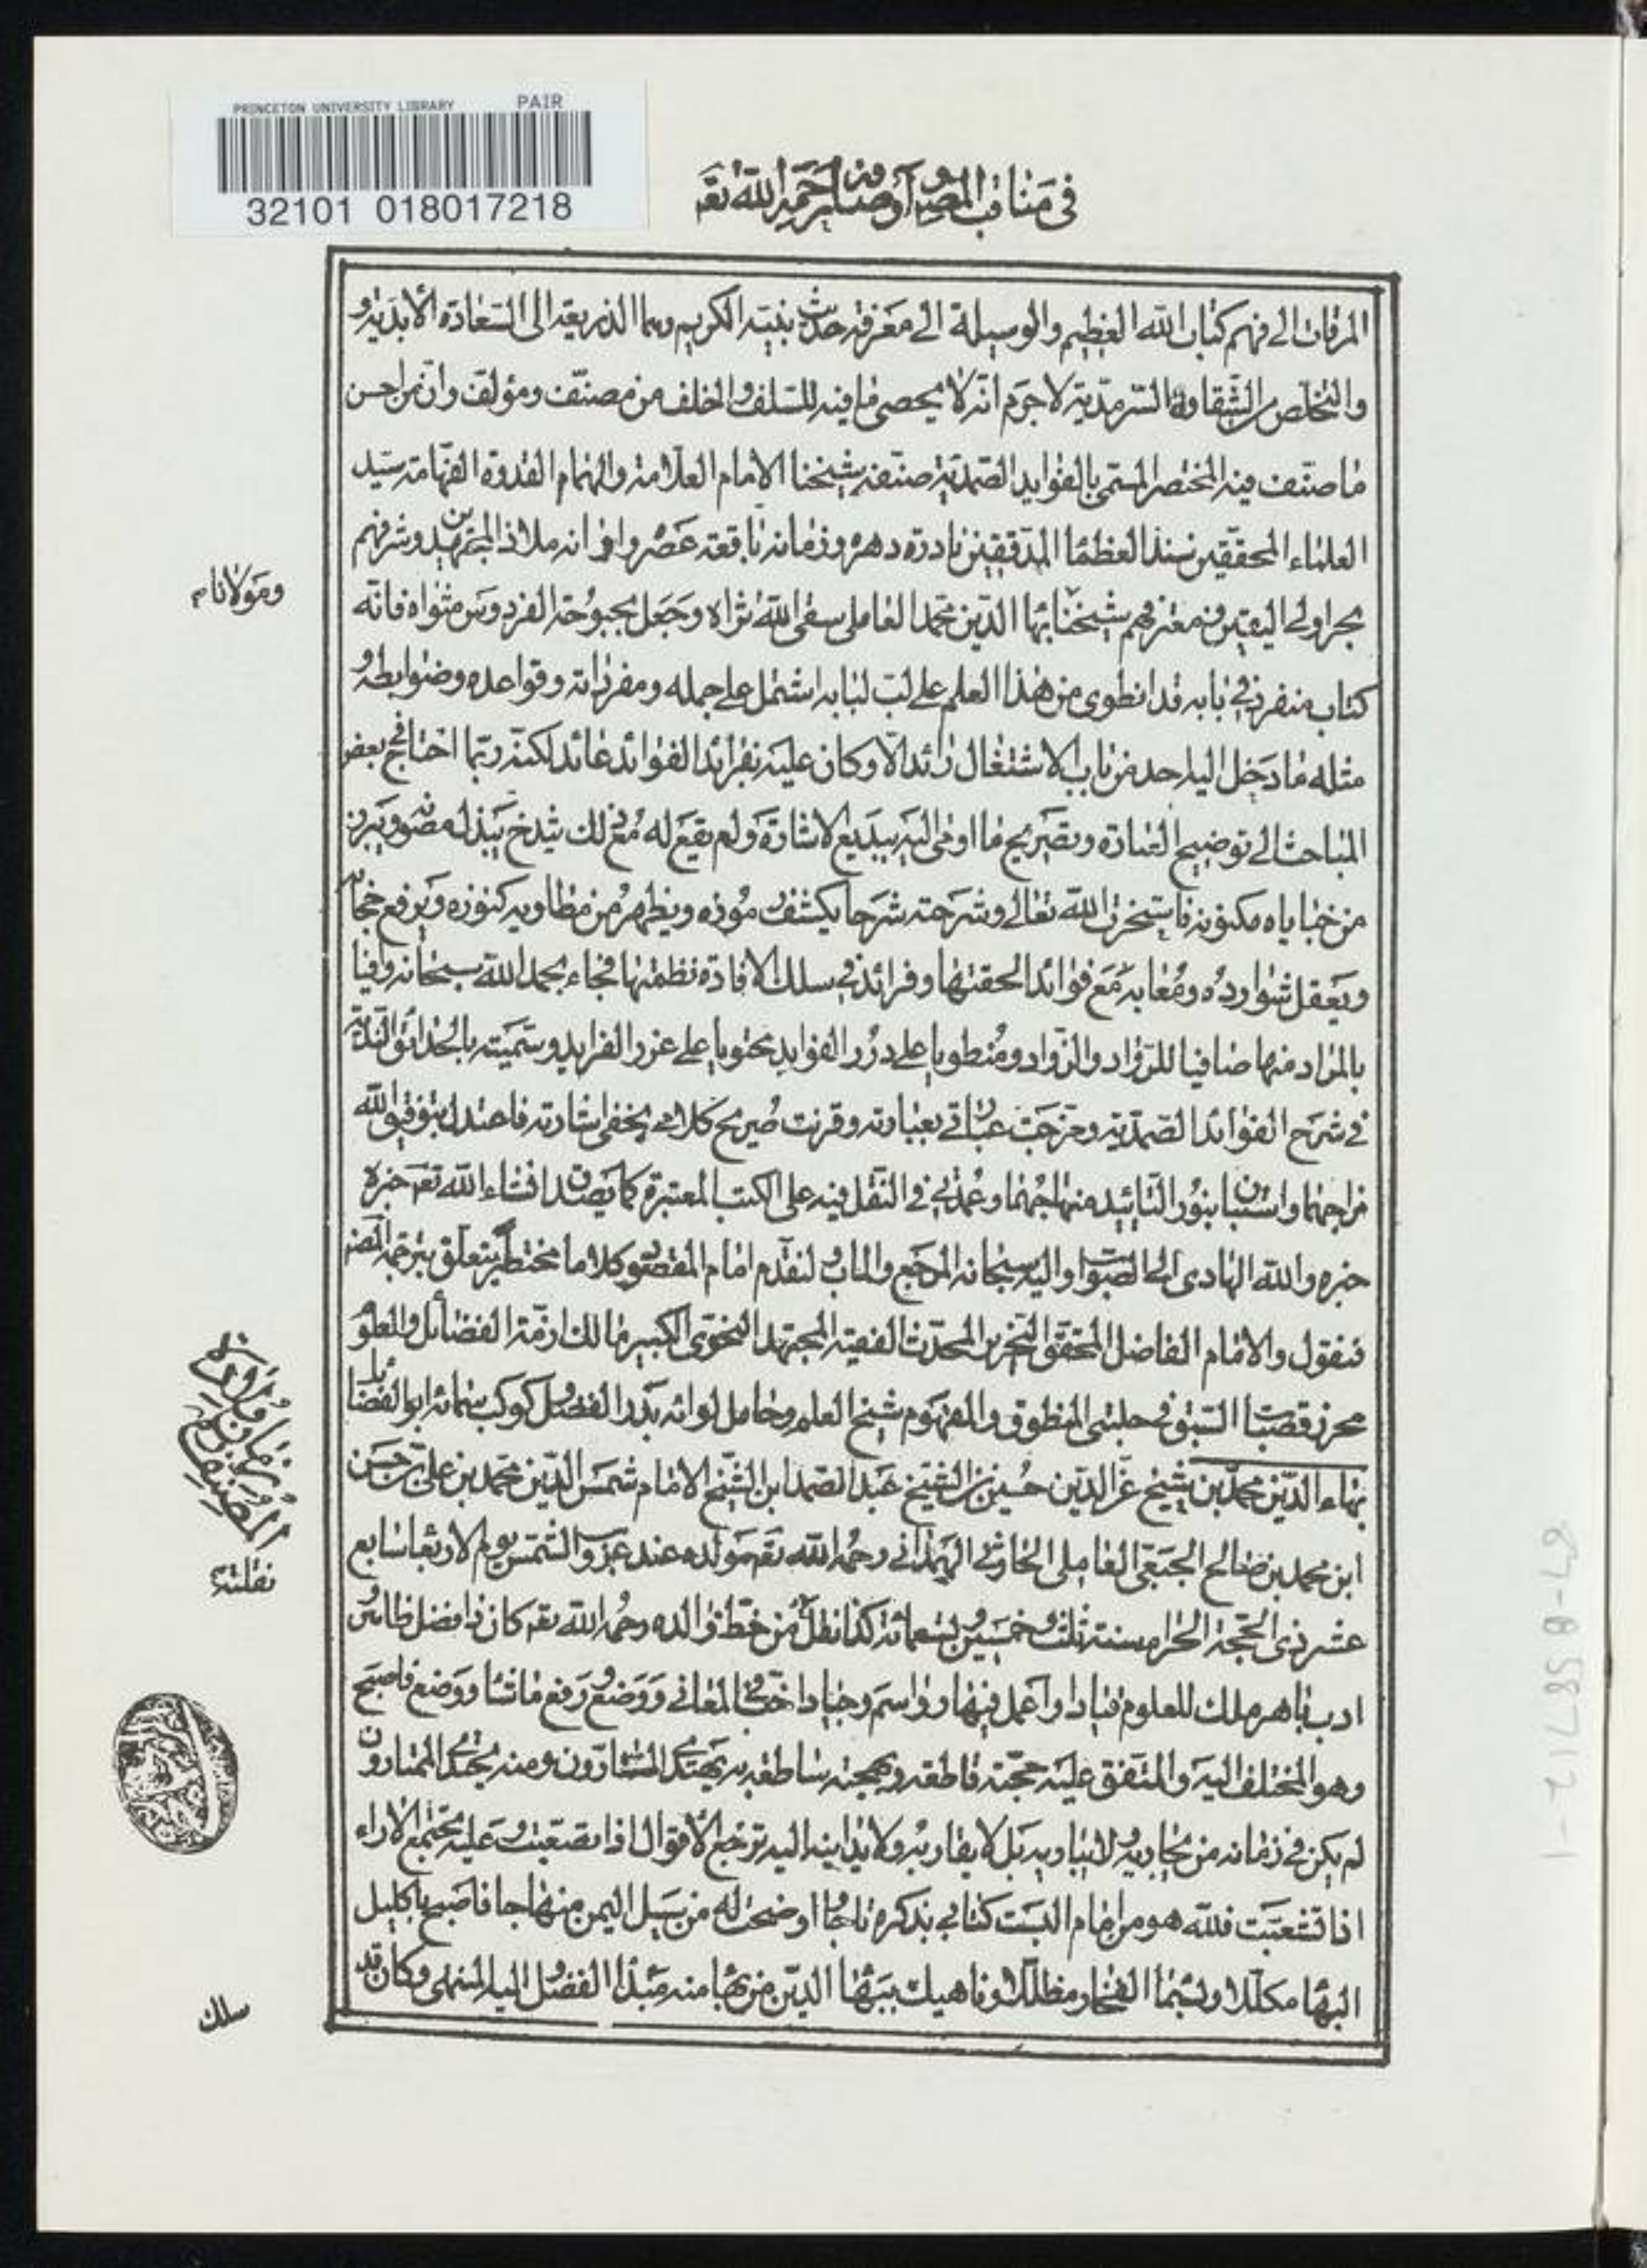 PRINCETON UNIVERSITY LIBRARY PAIR
32101 018017218
في مناقب المصنف وأوصافه رحمه الله تعه
المرقات الى فهم كتاب الله العظيم والوسيلة الى معرفة حديث نبيه الكريم وهما الذريعة الى السعادة الأبدية و
والتخلص من الشقاوة السرمدية لا جرم انه لا يحصى ما فيه للسلف والخلف من مصنف ومؤلف وان من احسن
ما صنف فيه المختصر المسمى بالفوايد الصمدية صنفه شيخنا الامام العلامة والهمام القدوة الفهامة سيد
العلماء المحققين سند العظماء المدققين نادرة دهره وزمانه باقعة عصره واوانه ملاذ المجتهدين وشرفهم
بحر اولى اليقين ومغترفهم شيخنا بهاء الدين محمد العاملى سقى الله ثراه وجعل بحبوحة الفردوس مثواه فانه
ومولانا م
كتاب منفرد في بابه قد انطوى من هذا العلم على لب لبابه اشتمل على جمله ومفرداته وقواعده وضوابطه و
مثله ما دخل اليه احد من باب الاشتغال زائد الا وكان عليه بفرائد الفوائد عائد لكنه ربما احتاج في بعض
المباحث الى توضيح العبارة وتصريح ما اومى اليه ببديع الاشارة ولم يقع له مع ذلك شرح يبذل مصونه ويبرز
من خباياه مكنونه فاستخرت الله تعالى وشرحته شرحا يكشف رموزه ويظهر من مطاويه كنوزه ويرفع حجابه
ويعقل شوارده ومعايبه مع فوائد الحقتها وفرائد في سلك الافادة نظمتها فجاء بحمد الله سبحانه وافيا
بالمراد منها صافيا للرواد والزواد ومنطويا على درر الفوايد محتويا على غرر الفرايد وسميته بالحدائق الندية
في شرح الفوائد الصمدية ومزجت عباراتي بعبارته وقرنت صريح كلامي بخفى اشارته فاعتدل بتوفيق الله
مزاجهما واستبان بنور التائيد منهاجهما وعمدتي في النقل فيه على الكتب المعتبرة كما يصدق ان شاء الله تعه خبره
خبره والله الهادى الى الصواب واليه سبحانه المرجع والماب ولنقدم امام المقصود كلاما مختصرا يتعلق بترجمة المصنف
فنقول والامام الفاضل المحقق النحرير المحدث الفقيه المجتهد النحوى الكبير مالك ازمة الفضائل والعلوم
محرز قصبات السبق في حلبتى المنطوق والمفهوم شيخ العلم وحامل لوائه بدر الفضل وكوكب سمائه ابو الفضائل
بهاء الدين محمد بن شيخ عز الدين حسين بن الشيخ عبد الصمد ابن الشيخ الامام شمس الدين محمد بن على بن حسن
ابن محمد بن صالح الجبعى العاملى الحارثي الهمداني رحمه الله تعه مولده عند غروب الشمس يوم الاربعا سابع
عشر ذى الحجة الحرام سنة ثلث وخمسين وتسعمائة كذا نقل من خط والده رحمه الله تعه كان ذا فضل ظاهر و
نقلته
ادب باهر ملك للعلوم قيادا واعمل فيها رواسم وجيادا اخفى المعاني ووضع رفع ما شا ووضع فاصبح
وهو المختلف اليه والمتفق عليه حجته قاطعة وبهجته ساطعة به يهتدى السارون ومنه يجتدى الممتارون
لم يكن في زمانه من يجاريه ولا يباريه بل لا يقاربه ولا يدانيه اليه ترجع الاقوال اذا تصعبت وعليه تجتمع الآراء
اذا تشعبت فلله هو من امام البست كتابي بذكره تاجا اوضحت له من سبل اليمن منهاجا فاصبح باكليل
البها مكللا وبسما الفخار مظللا وناهيك ببها الدين من بها منه مبدأ الفضل واليه المنتهى وكان قد
سلك